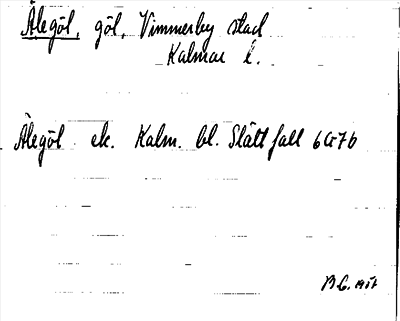 Ålegöl, göl, Vimmerby stad
Kalmar l.
Ålegöl ek. Kalm. bl. Slättfall 6G7b